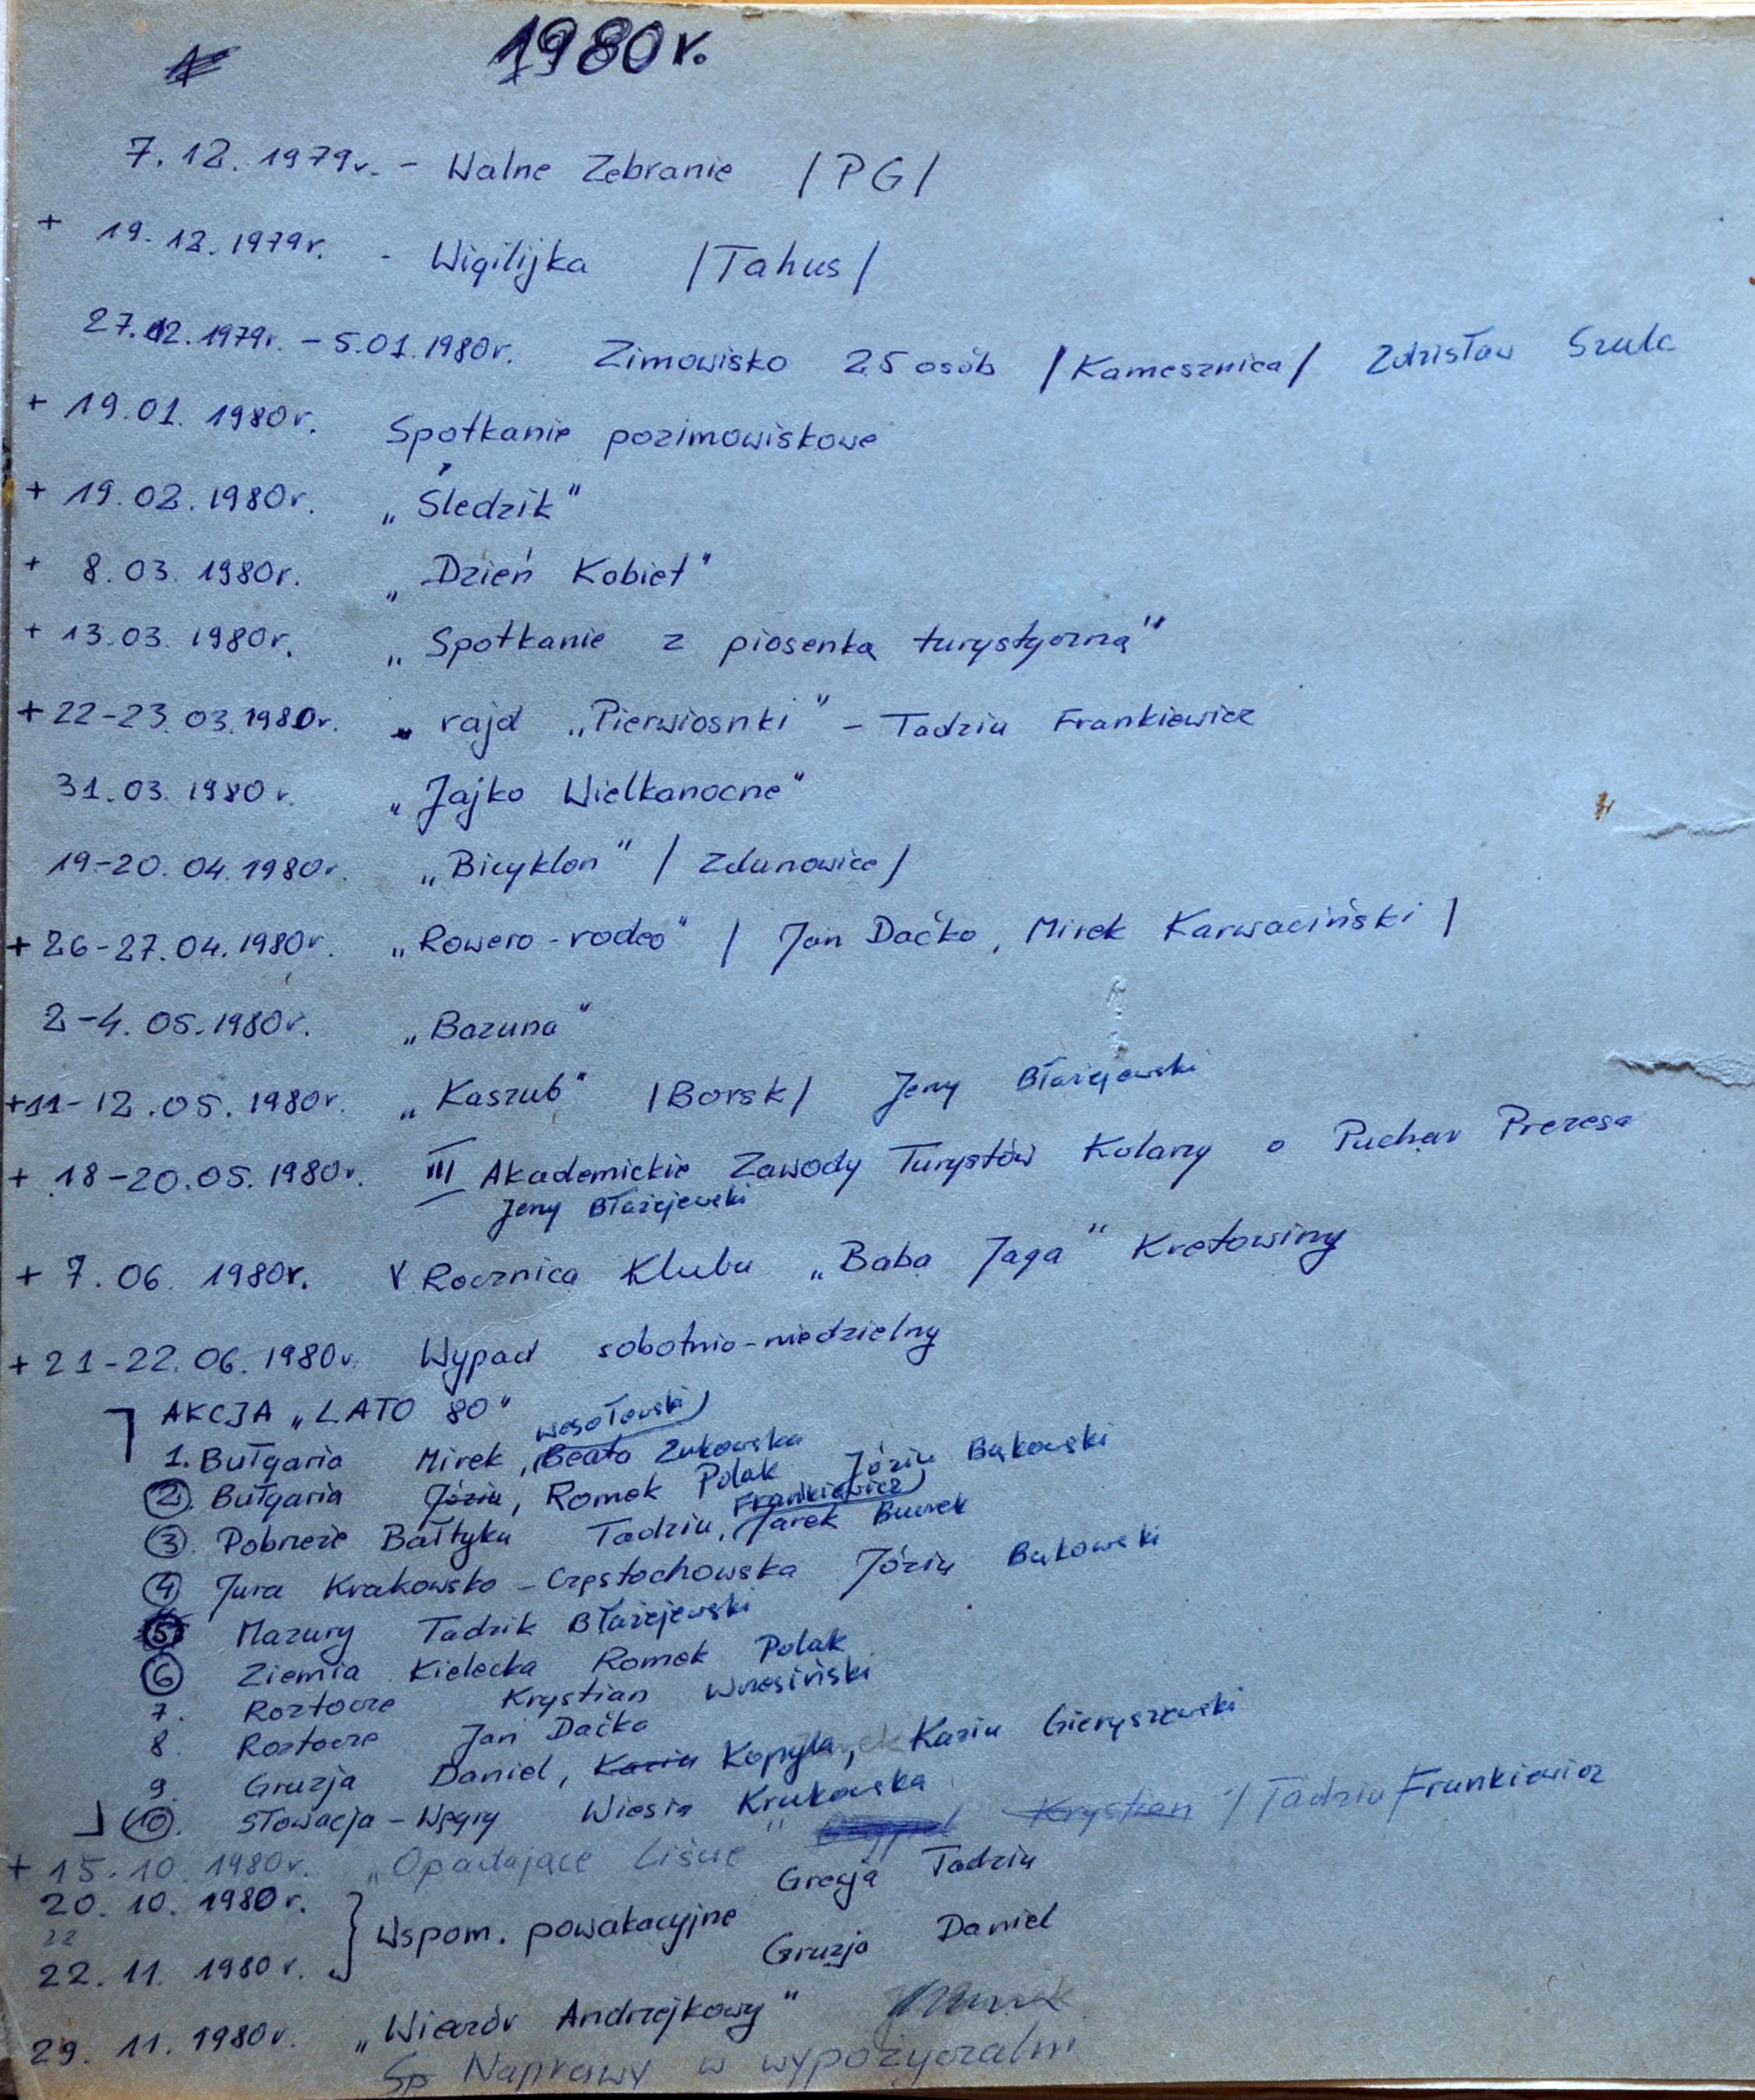 1980r.
7.12.1979r. - Walne Zebranie /PG/
+ 19.12.1979r. - Wigilijka /Tahus/
27.12.1979r. - 5.01.1980r. Zimowisko 25 osób /Kamesznica/ Zdzisław Szulc
+ 19.01.1980r. Spotkanie pozimowiskowe
+ 19.02.1980r. „Śledzik"
+ 8.03.1980r. „Dzień Kobiet"
+ 13.03.1980r. „Spotkanie z piosenką turystyczną"
+ 22-23.03.1980r. rajd „Pierwiosnki" - Tadziu Frankiewicz
31.03.1980r. „Jajko Wielkanocne"
19-20.04.1980r. „Bicyklon" /Zdunowice/
+ 26-27.04.1980r. „Rowero-rodeo" / Jan Daćko, Mirek Karwaciński /
2-4.05.1980r. „Bazuna"
+ 11-12.05.1980r. „Kaszub" /Borsk/ Jerzy Błażejewski
+ 18-20.05.1980r. III Akademickie Zawody Turystów Kolarzy o Puchar Prezesa
Jerzy Błażejewski
+ 7.06.1980r. V Rocznica Klubu „Baba Jaga" Kretowiny
+ 21-22.06.1980r. Wypad sobotnio-niedzielny
AKCJA „LATO 80"
Wesołowski
1. Bułgaria Mirek, Beata Żukowska
2. Bułgaria Józiu, Romek Polak Józiu Bąkowski
Frankiewicz
3. Pobrzeże Bałtyku Tadziu, Jarek Burek
4 Jura Krakowsko-Częstochowska Józiu Bąkowski
5 Mazury Tadzik Błażejewski
6 Ziemia Kielecka Romek Polak
7. Roztocze Krystian Wrzesiński
8. Roztocze Jan Daćko
9. Gruzja Daniel, Kaziu Kopyła, Kaziu Gieryszewski
10. Słowacja - Węgry Wiesia Krukowska
+ 15.10.1980r. „Opadające Liście" Krystian / Tadziu Frankiewicz
20.10.1980r. Grecja Tadziu
22
Wspom. powakacyjne
22.11.1980r. Gruzja Daniel
29.11.1980r. „Wieczór Andrzejkowy"
Sp Naprawy w wypożyczalni